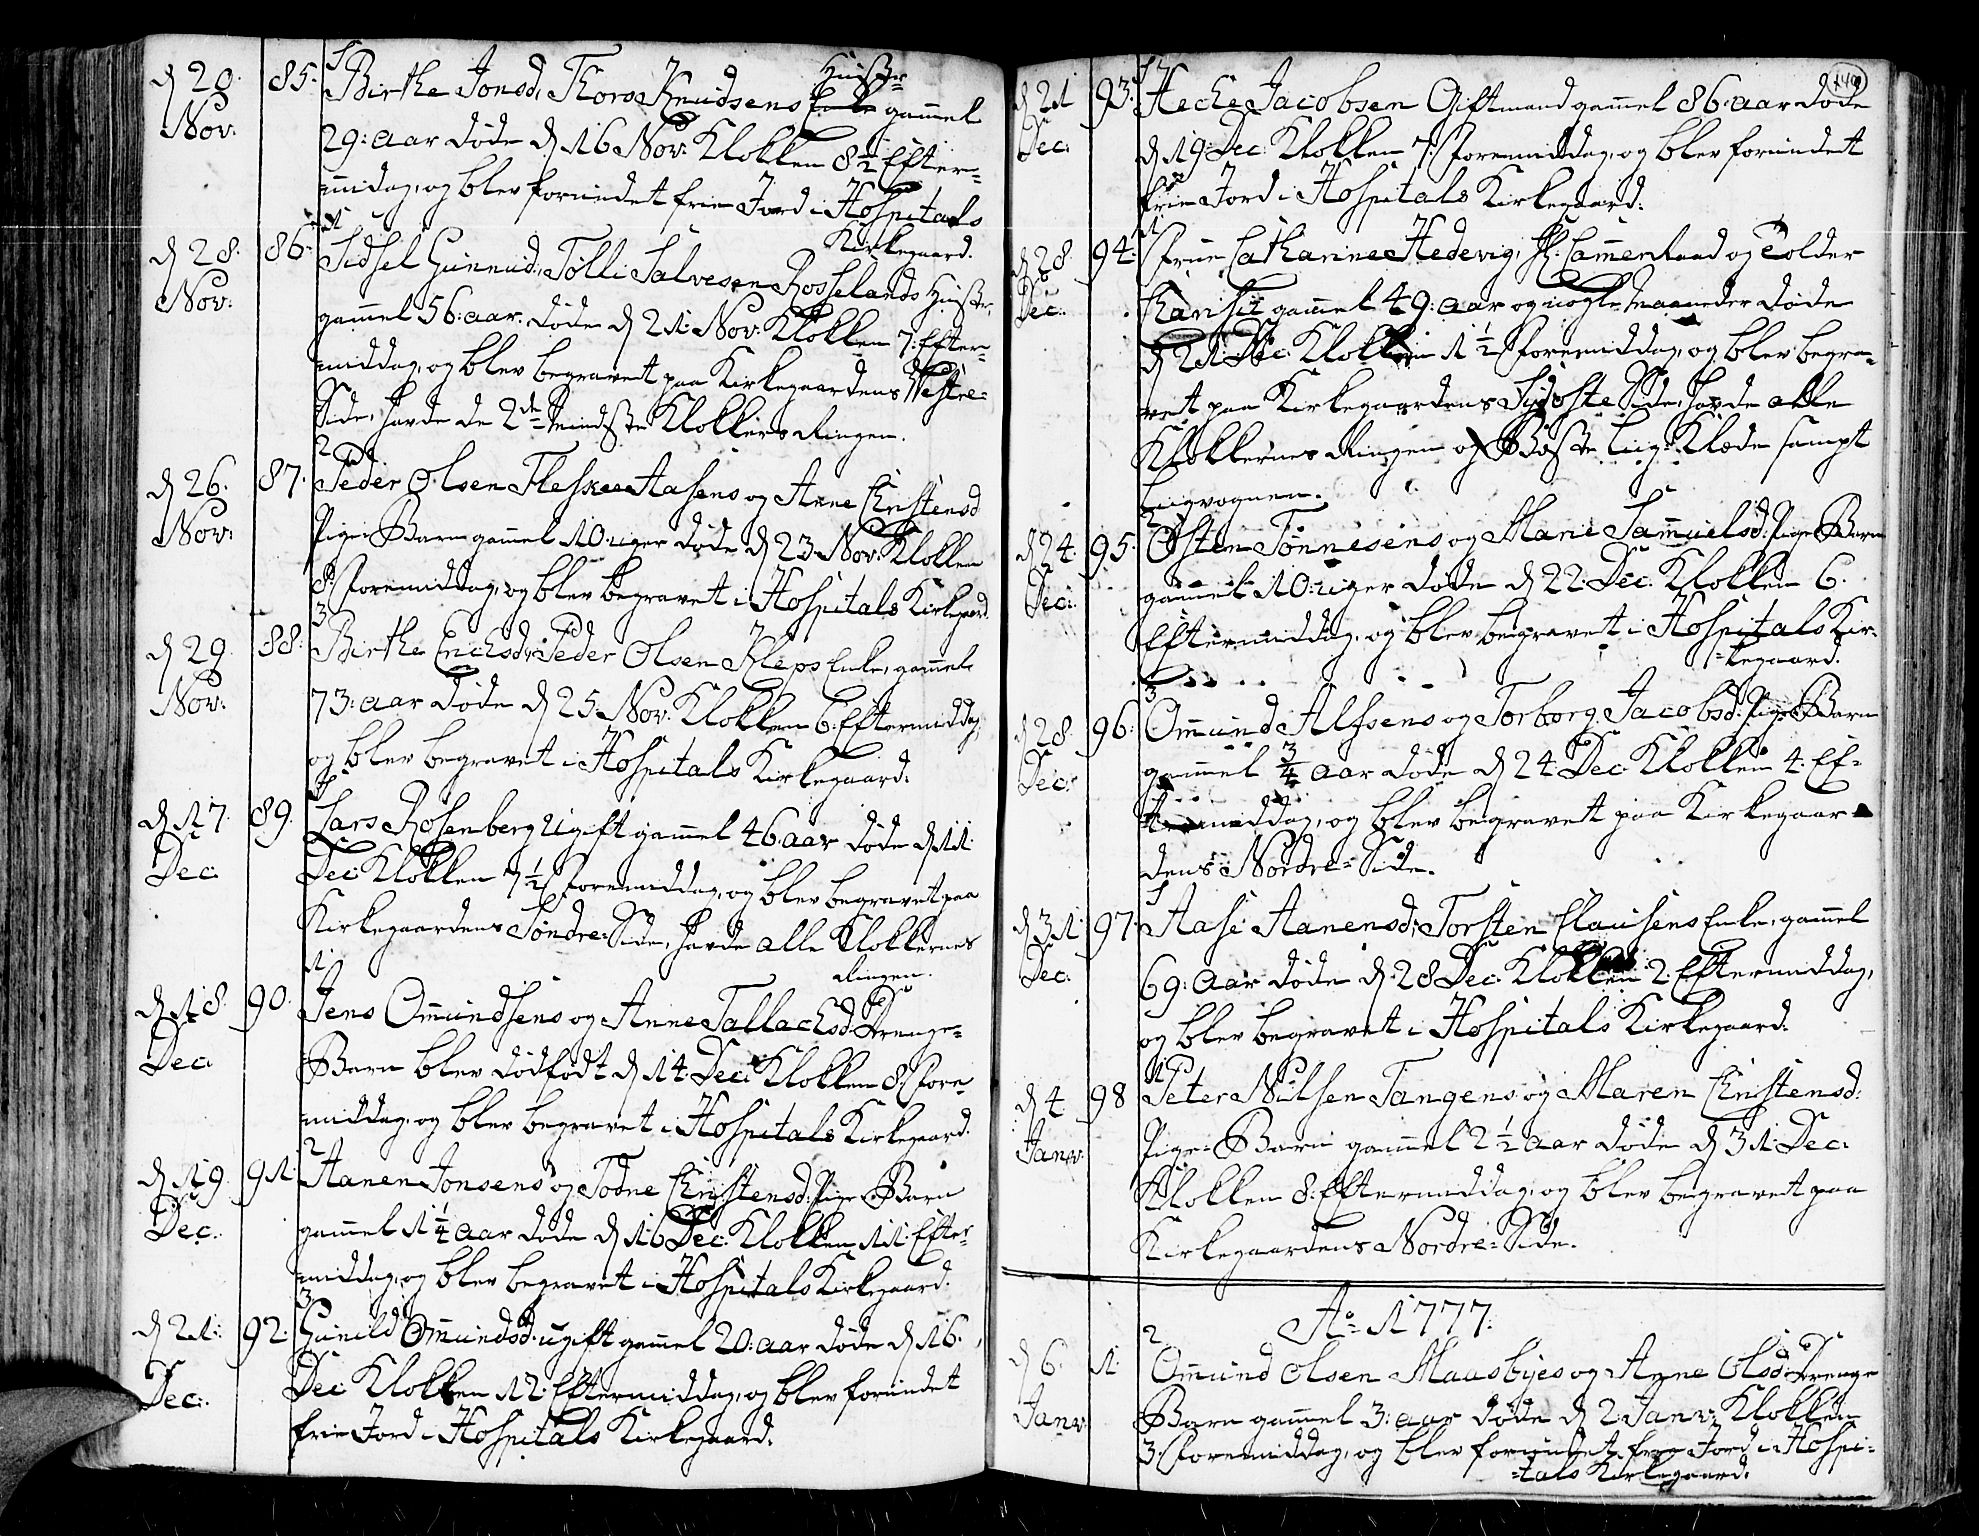 d 20. 85. Birthe Jonsd, Thore Knudsens Hustr. gammel
Nov: 29: aar døde d 16 Nov: Klokken 8½ Efter=
middag, og blev forundet frie Jord i Hospitals
Kirkegaard.
d 28. 86. Sidsel Gunnuld, Tølli Salvesen Rosselands Hustr.
Nov: gammel 56: aar, døde d 21 Nov: Klokken 7: Efter=
middag, og blev begravet paa Kirkegaardens Vestre=
Side, havde de 2de mindste Klokkers Ringen.
2
d 26. 87. Peder Olsen Fleskeaasens og Anne Christensd
Nov: Pige=Barn gammel 10: uger døde d 23 Nov: Klokken
8: Foremiddag, og blev begravet i Hospitals Kirkegaard
3
d 29. 88. Birthe Erichsd, Peder Olsen Kleps Enke, gammel
Nov: 73: aar døde d 25 Nov: Klokken 6: Eftermiddag,
og blev begravet i Hospitals Kirkegaard.
d 17. 89. Lars Rosenberg Ugift gammel 46 aar døde d 11:
Dec: Dec: Klokken 7½ Foremiddag, og blev begravet paa
Kirkegaardens Søndre=Side, havde alle Klokkernes
Ringen.
1
d 18. 90. Jens Ommundsens og Anne Tallachsd Drenge=
Dec: Barn blev dødfødt d 14 Dec: Klokken 8: Fore
middag, og blev begravet i Hospitals Kirkegaard.
2
d 19. 91. Aanen Jonsens og Todne Christensd: Pige=Barn
Dec: gammel 1¼ aar døde d 16 Dec: Klokken 11: Efter=
middag, og blev begravet i Hospitals Kirkegaard.
3
d 21. 92. Gunild Ommundsd: ugift gammel 20: aar døde d 16.
Dec: Dec: Klokken 12: Eftermiddag, og blev forundet
frie Jord i Hospitals Kirkegaard.
d 21 93. Heche Jacobsen Giftmand gammel 86: aar døde
Dec: d 19 Dec: Klokken 7: Foremiddag, og blev forundet
frie Jord i Hospitals Kirkegaard.
1
d 28 94. Frue Catharine Hedevig, Cammer Raad og Tolder
Dec: gammel 49: aar og nogle Maaneder døde
d 21 Dec: Klokken 1½ Foremiddag, og blev begra=
vet paa Kirkegaardens Side, havde alle
Klokkernes Ringen og Bæste Liig=Klæde sampt
Liigvognen.
d 24. 95. Østen Tønnesens og Mari Sammuelsd: Pige=Barn
Dec: gammel 10: uger døde d 22: Dec: Klokken 6.
Eftermiddag, og blev begravet i Hospitals Kir=
=kegaard.
3
d 28. 96. Ommund Alfsens og Torborg Jacobsd: Pige=Barn
Dec: gammel ¾ aar døde d 24 Dec: Klokken 4. Ef=
termiddag, og blev begravet paa Kirkegaar
dens Nordre=Side.
d 31. 97. Aase Aanensd, Torsten Clausens Enke, gammel
Dec: 69: aar døde d: 28 Dec: Klokken 2. Eftermiddag,
og blev begravet i Hospitals Kirkegaard.
1
d 4 98 Peter Nilsen Tangens og Maren Christensd:
Janv: Pige=Barn gammel 2½ aar døde d 31: Dec:
Klokken 8: Eftermiddag, og blev begravet paa
Kirkegaardens Nordre=Side.
Ao 1777.
2
d 6. 1. Ommund Olsen Maasbyes og Anne Olsd: Drenge
Janv: Barn gammel 3: aar døde d 2 Janv: Klokken
3: Foremiddag, og blev forundet frie Jord i Hospi=
=tals Kirkegaard.